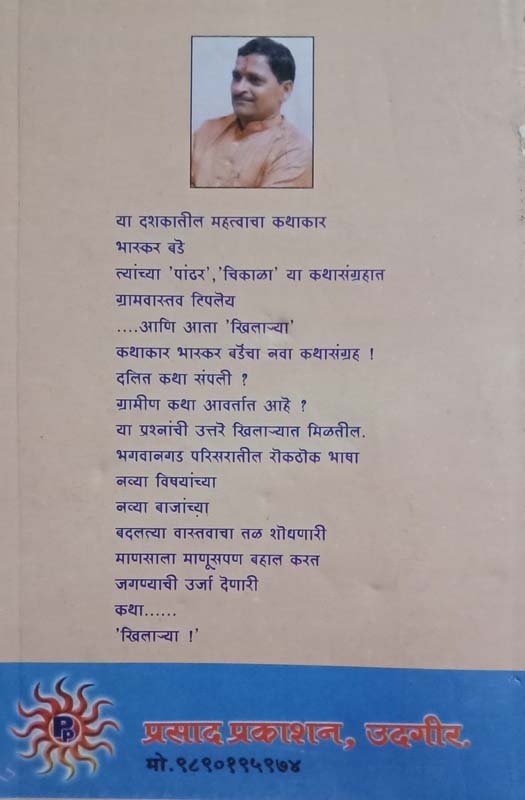 या दशकातील महत्वाचा कथाकार
भास्कर बडे
त्यांच्या 'पांढर','चिकाळा' या कथासंग्रहात
ग्रामवास्तव टिपलेय
....आणि आता 'खिलाऱ्या'
कथाकार भास्कर बडेंचा नवा कथासंग्रह !
दलित कथा संपली ?
ग्रामीण कथा आवर्तात आहे ?
या प्रश्नांची उत्तरे खिलाऱ्यात मिळतील.
भगवानगड परिसरातील रोकठोक भाषा
नव्या विषयांच्या
नव्या बाजांच्या
बदलत्या वास्तवाचा तळ शोधणारी
माणसाला माणूसपण बहाल करत
जगण्याची उर्जा देणारी
कथा......
'खिलाऱ्या !'
PP
प्रसाद प्रकाशन, उदगीर.
मो.९८९०१९५९७४